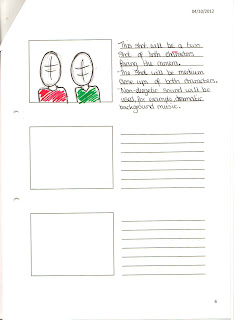 04/10/2012
This shot will be a two
shot of both characters
facing the camera.
This shot will be medium
close ups of both characters.
Non-diegetic sound will be
used, for example, dramatic
background music.